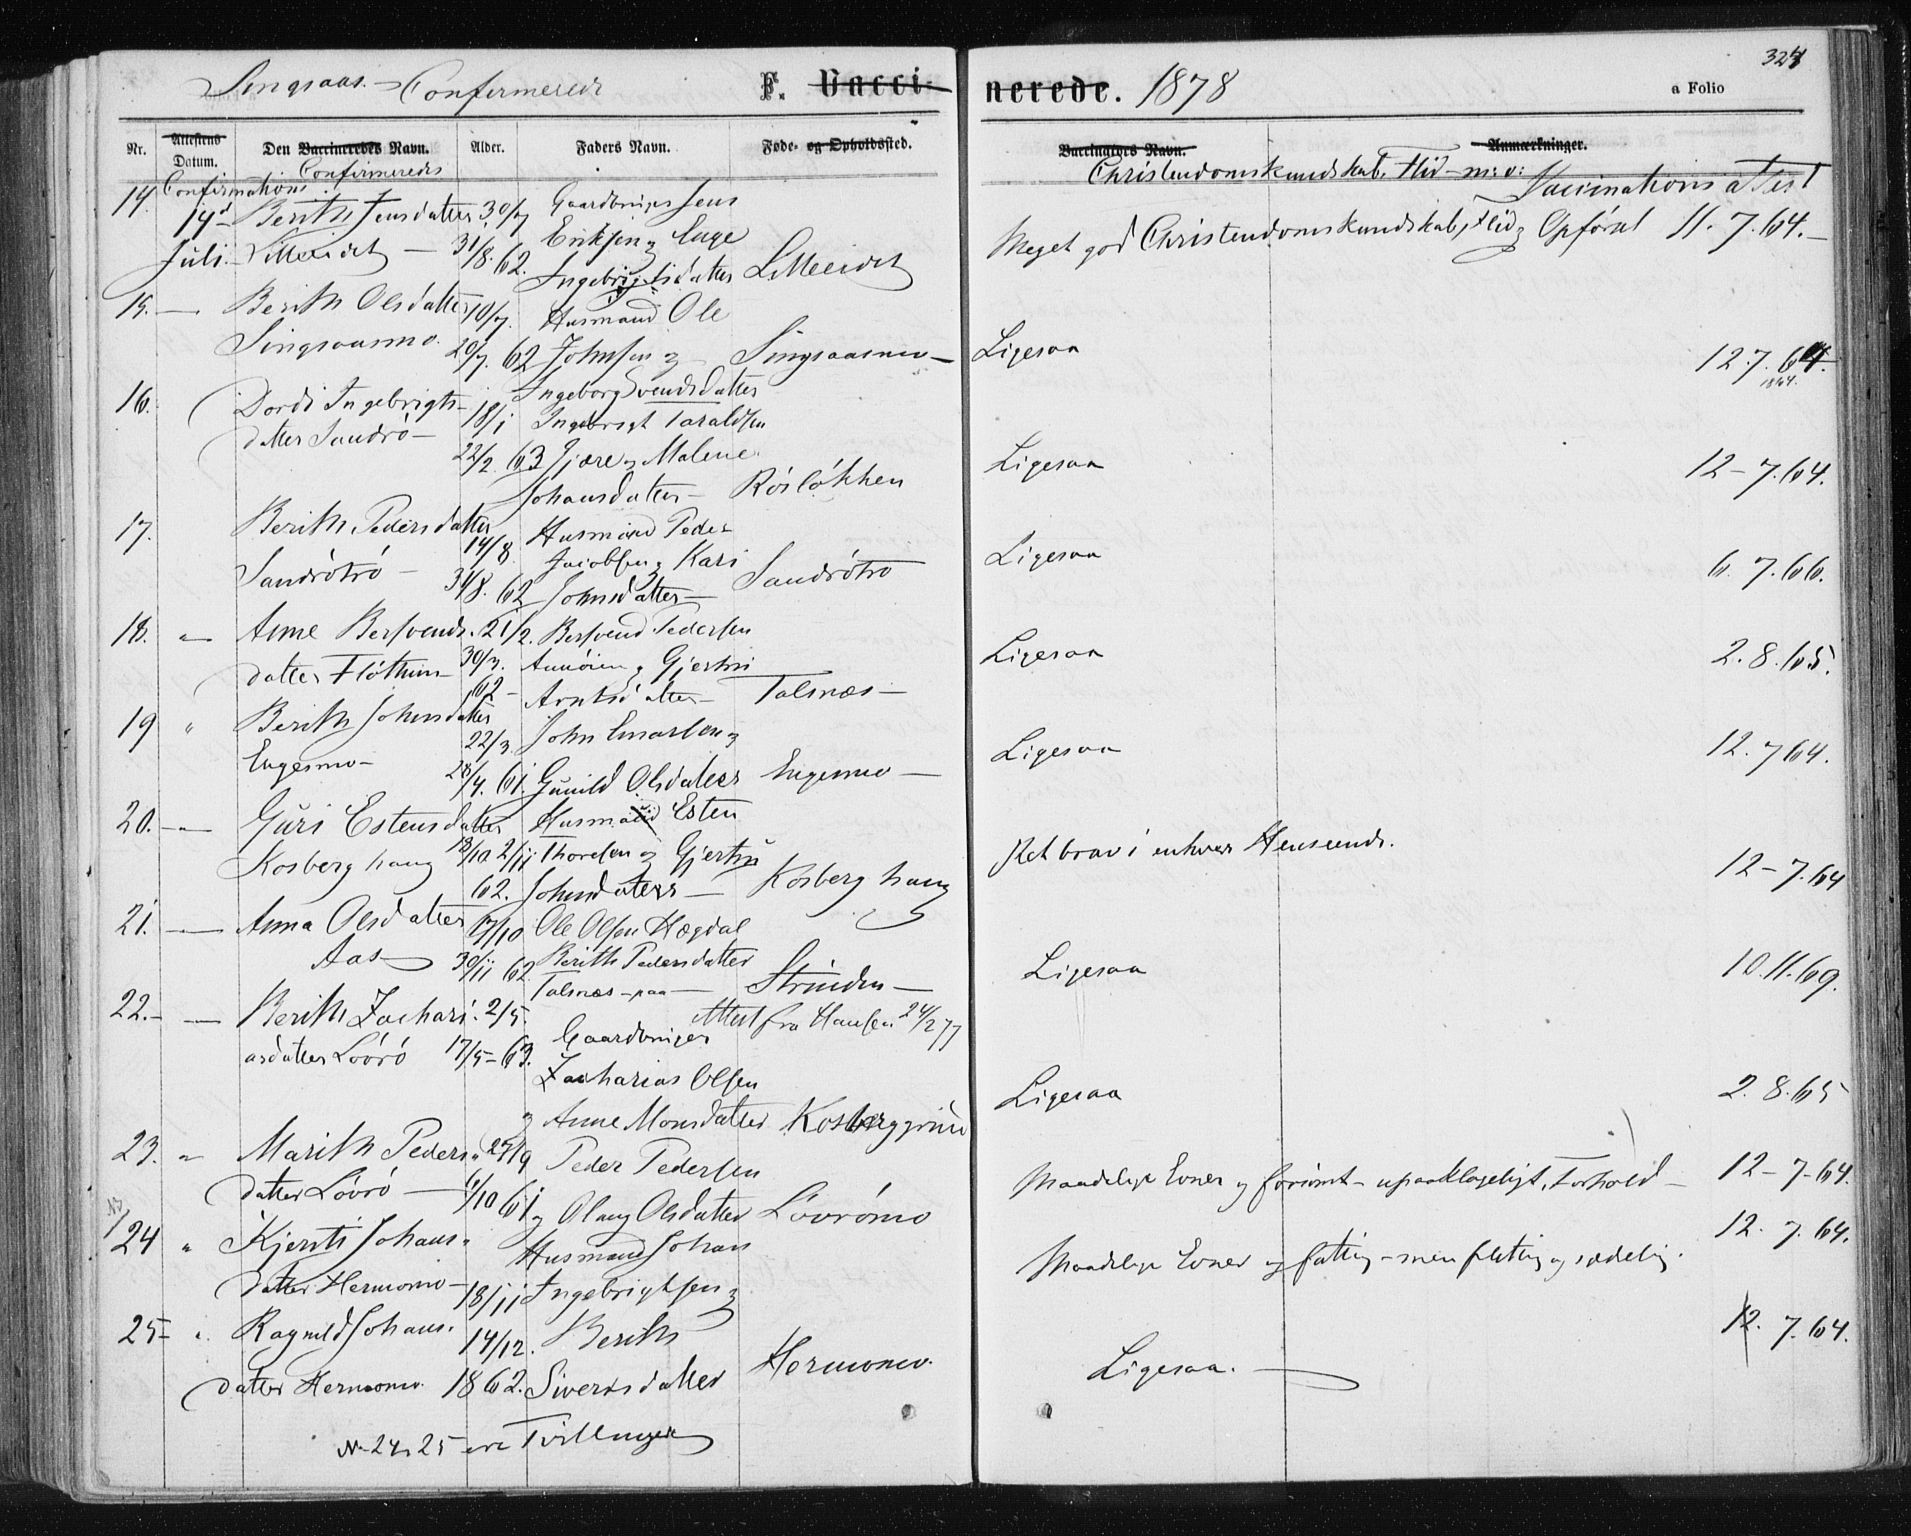 Singsaas - Confirmerede F. Vaccinerede. 1878
324
a Folio
Nr. Attestens Datum. Den Vaccineredes Navn. Alder. Faders Navn. Føde- og Opholdssted. Vaccinators Navn. Anmærkninger.
Confirmations Confirmeredes Christendomskundskab, Flid m: v: Vaccinations attest
14. 14d Berith Jensdatter 30/7 Gaardbruger Jens
Juli - Litleeidet - 31/8. 62. Eriksen og
Ingebrigtsdatter Litleeidet
Meget god Christendomskundskab, Flid og Opførsel 11. 7. 64. -
15. - Berith Olsdatter 10/7. Husmand Ole
Singsaasmo. 20/7. 62 Johnsen og Singsaasmo -
Ingeborg Svendsdatter
Ligesaa 12. 7. 64.
1864.
16. Dordi Ingebrigts- 18/1 Ingebrigt Taraldsen
datter Sandrö - 22/2. 63 Gjære og Malene
Johansdatter - Rösløkken
Ligesaa 12 - 7. 64.
17. Berith Pedersdatter 14/8 Husmand Peder
Sandrötrö - 31/8. 62 Jacobsen og Kari
Johnsdatter - Sandrötrö
Ligesaa 6. 7. 66.
18. " - Anne Bersvends- 21/2. Bersvend Pedersen
datter Flöttum 30/3. og Gjertru
62 - Arntsdatter - Talsnæs -
Ligesaa 2. 8. 65.
19 " Berith Johnsdatter 22/3. John Einarsen og
Engesmo - 28/4. 61. Gunild Olsdatter Engesmo -
Ligesaa 12. 7 64.
20. - Guri Estensdatter Husmand Esten
Kosberg haug 18/10 2/11 Thoresen og Gjertru
62. Johnsdatter - Kosberg haug
Ret brav i enhver Henseende. 12 - 7. 64
21. - Anna Olsdatter 17/10 Ole Olsen Hægdal
Aas 30/11 62 Berith Pedersdatter
Talsnæs - paa - Strinden -
Attest fra Hansen 24/2 77
Ligesaa 10. 11. 69.
22. - Berith Zachari- 2/5. Gaardbruger
asdatter Lövrö 17/5 - 63. Zacharias Olsen
og Anne Monsdatter Kosberggrind
Ligesaa 2. 8. 65
23. " Marith Peders- 27/9 Peder Pedersen
datter Lövrö - /10 61 og Olaug Olsdatter Lövrömo
Maadelige Evner og forsömt - upaaklageligt Forhold - 12 - 7 - 64.
24 " Kjersti Johans- Husmand Johan
datter Hermomo - 18/11 Ingebrigtsen og
Maadelige Evner og fattig - men flittig og sædelig. 12. 7. 64.
25 - " Ragnild Johans- 14/12. Berith
datter Hermomo. 1862. Siversdatter Hermomo.
Ligesaa. - 12. 7. 64.
No 24 & 25 ere Tvillinger